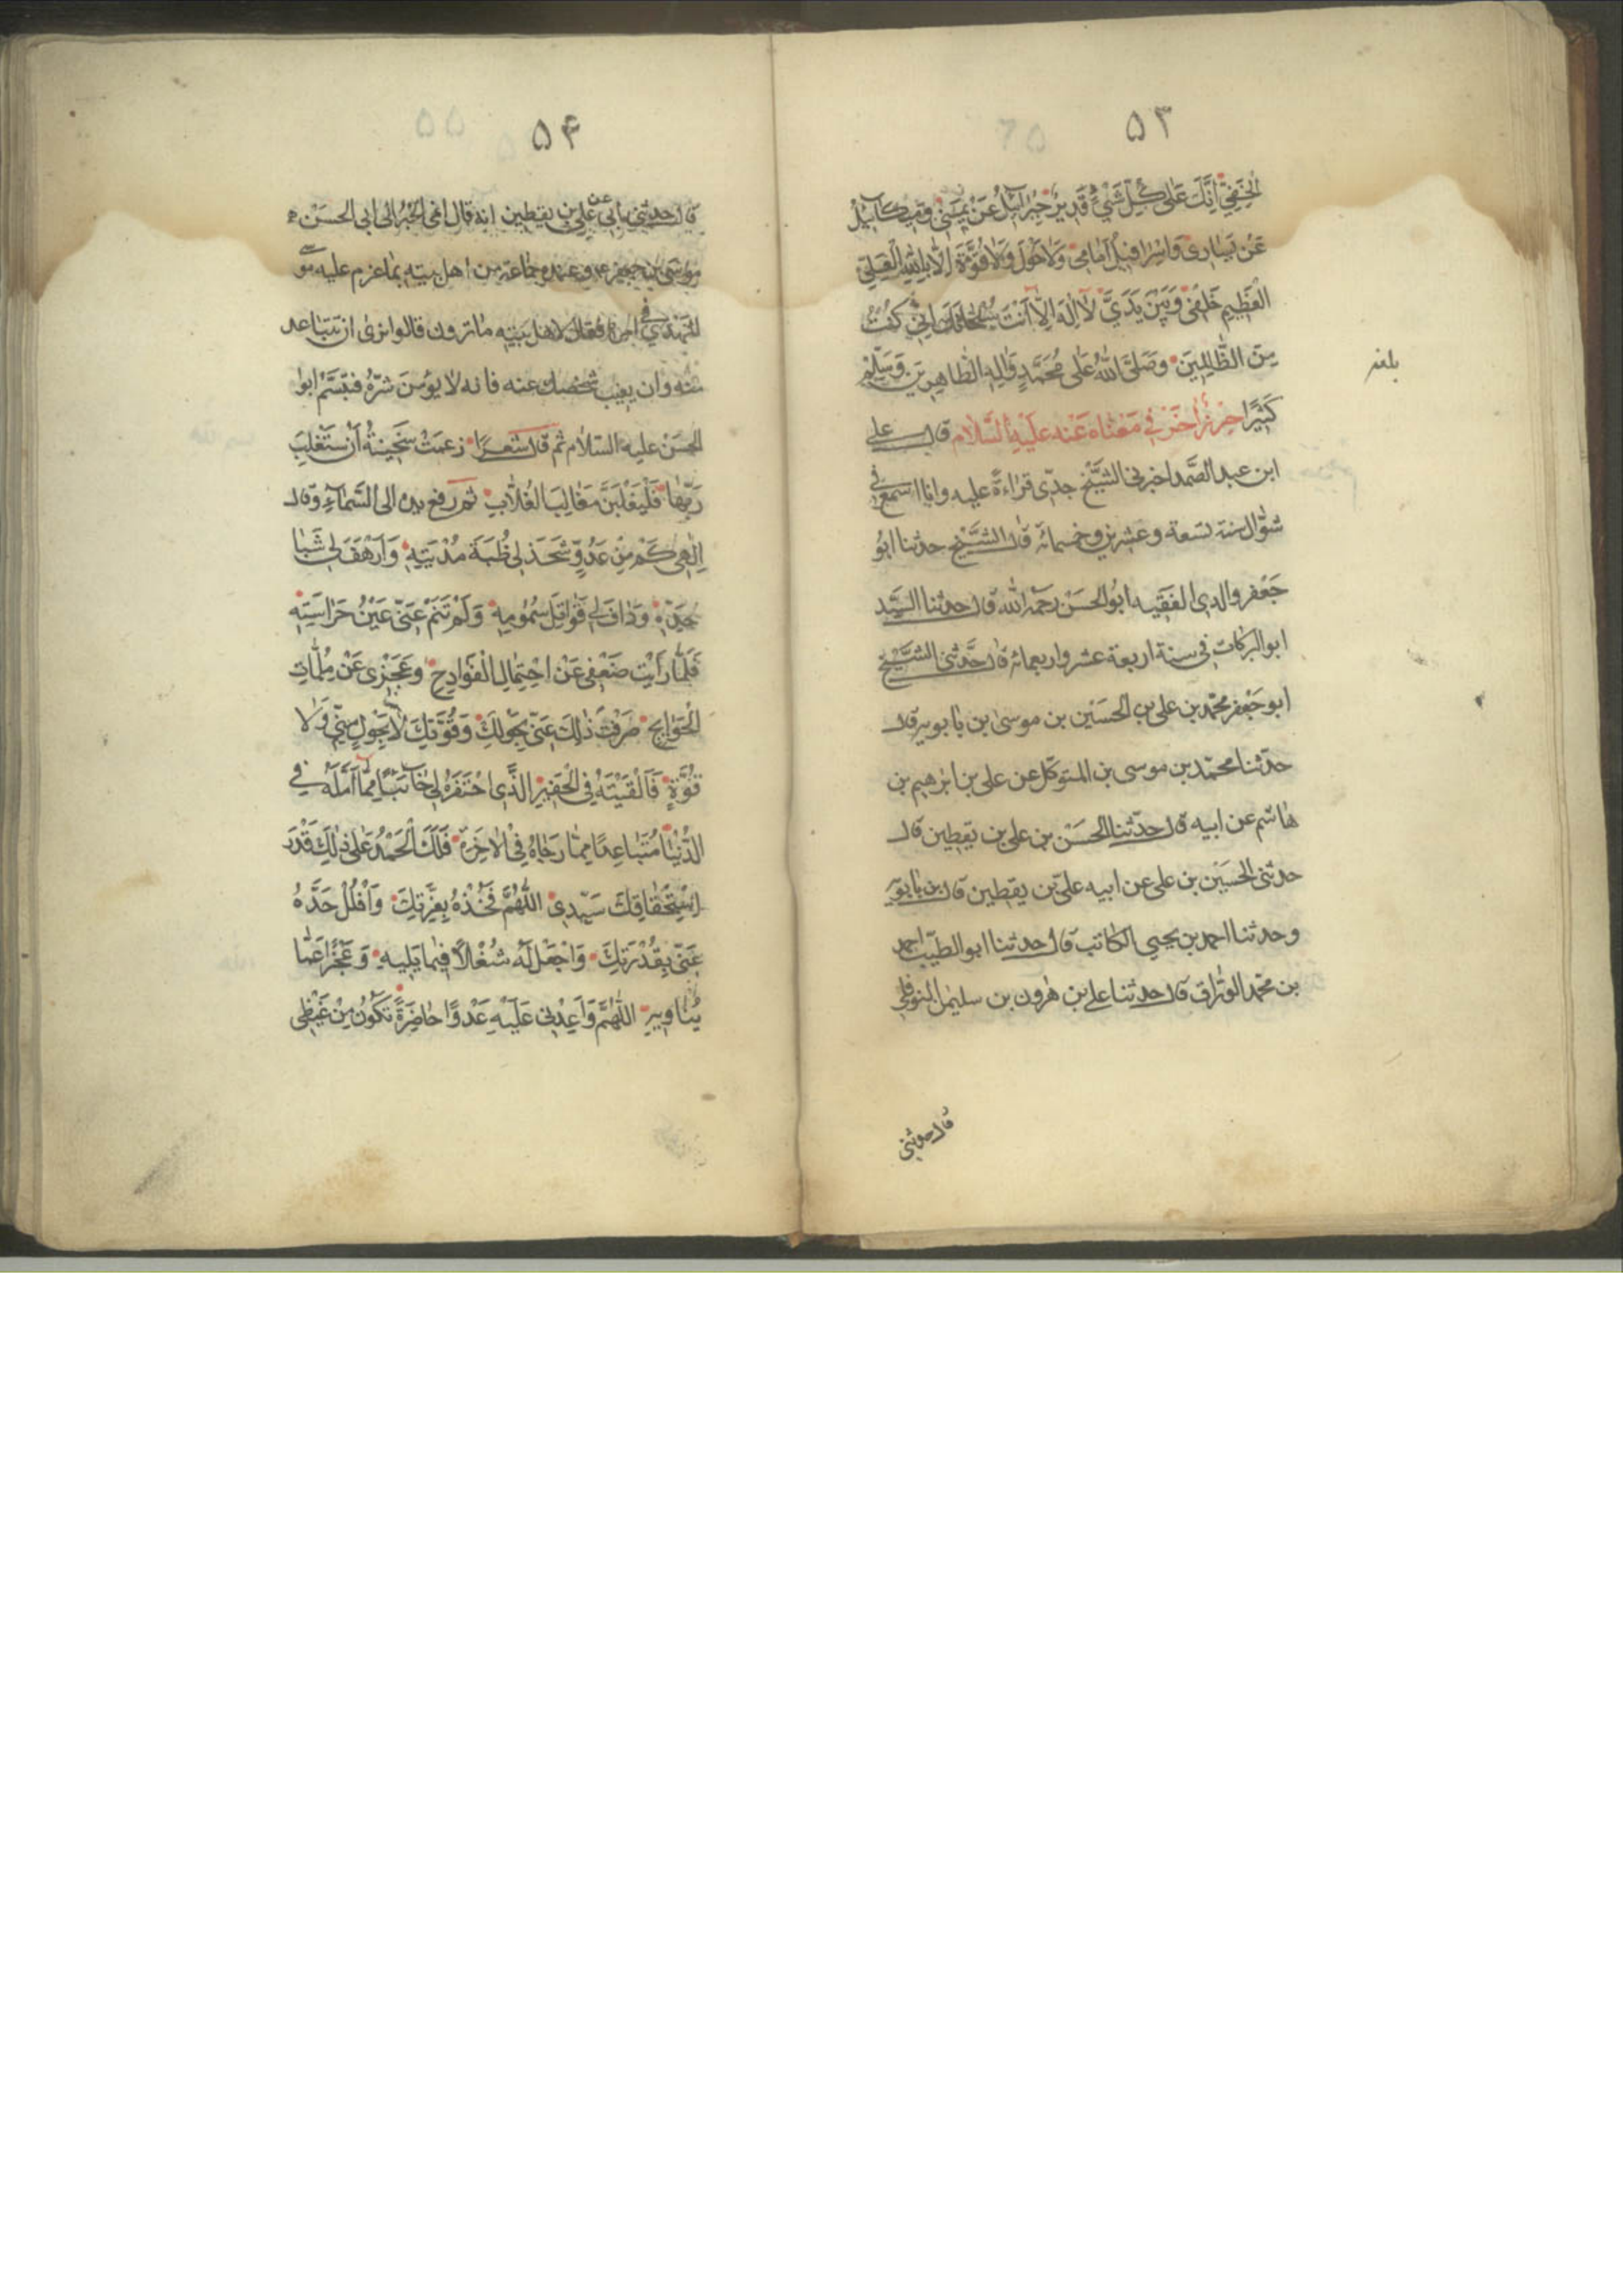 ۵۳
الْخَفِيِّ اِنَّكَ عَلٰى كُلِّ شَيْءٍ قَدِيرٌ جِبْرَآئيلُ عَنْ يَمِينِي وَمِيكَآئِيلُ
عَنْ يَسَارِى وَاِسْرَافِيلُ اَمَامِى وَلَاحَوْلَ وَلَاقُوَّةَ اِلَّا بِاللهِ الْعَلِيِّ
الْعَظِيمِ خَلْفِى وَبَيْنَ يَدَيَّ لَا اِلٰهَ اِلَّا اَنْتَ سُبْحَانَكَ اِنِّي كُنْتُ
مِنَ الظَّالِمِينَ وَصَلَّى اللهُ عَلٰى مُحَمَّدٍ وَاٰلِهِ الطَّاهِرِينَ وَسَلَّمَ
كَثِيرًا حِرْزٌ اٰخَرُ فِي مَعْنَاهُ عَنْهُ عَلَيْهِ السَّلَامُ قال على
ابن عبد الصَّمد اخبرنى الشَّيْخ جدّى قراءةً عليه وانا اسمع فى
شوّال سنة تسعة وعشرين وخمسمائه قال الشَّيْخ حدثنا ابوُ
جَعْفر والدى الفَقيه ابوُالحسَنْ رحمَهُ الله قال حدثنا السَّيّد
ابو البركات فى سنة اربعة عشر واربعمائه قال حَدَّثنى الشَّيْخ
ابو جَعْفر محمّد بن على بن الحسَيْن بن موسىٰ بن بابويه قال
حدثنا محمّد بن موسى بن المتوكّل عن على بن ابرهيم بن
هاشم عن ابيه قال حدّثنا الحسَنْ بن على بن يقطين قال
حدثنى الحسَيْن بن على عن ابيه علىّ بن يقطين قال بن بابويه
وحدثنا احمد بن يحيى الكاتب قال حدثنا ابو الطيّب احمد
بن محمّد الورّاق قال حدثنا على بن هٰرون بن سليمٰن النوفلى
قال حدثنى
۵۴
قال حدثنى ابى عن على بن يقطين انه قال انمى الخبَرُ الى ابى الحسَنْ
موسَى بن جعفر ع وعنده جماعة من اهل بيته بما عزم عليه موسى
المهْدى فى امره فقال لاهل بيته ما ترون قالوا نرى ان تتباعد
منه وان يغيب شخصك عنه فانه لا يؤمن شرّهُ فتبسَّمْ ابوا
الحسَنْ عليه السّلام ثم قال شعرًا زعمَتْ سَخِينَةُ اَنْ سَتَغْلِبُ
رَبَّهَا فَلَيُغْلَبَنَّ مَغَالِبُ الغُلَّابِ ثم رفع يده الى السَّماءِ وَقال
اِلٰهِى كَمْ مِنْ عَدُوٍّ شَحَذَ لِى ظُبَةَ مُدْيَتِهِ وَاَرْهَفَ لِى شَبَا
حَدِّهِ وَدَافَ لِى قَوَاتِلَ سُمُومِهِ وَلَمْ تَنَمْ عَنِّى عَيْنُ حَرَاسَتِهِ
فَلَمَّا رَاَيْتَ ضَعْفِى عَنْ احْتِمَالِ الْفَوَادِحِ وَعَجْزِى عَنْ مُلِمَّاتِ
الْحَوَايِجِ صَرَفْتَ ذٰلِكَ عَنِّى بِحَوْلِكَ وَقُوَّتِكَ لَا بِحَوْلٍ مِنِّي وَلَا
قُوَّةٍ فَاَلْقَيْتَهُ فِى الْحَفِيرِ الَّذِى احْتَفَرَهُ لِى خَائِبًا مِمَّا اَمَّلَهُ فِي
الدُّنْيَا مُتَبَاعِدًا مِمَّا رَجَاهُ فِى الْاٰخِرَةِ فَلَكَ الْحَمْدُ عَلٰى ذٰلِكَ قَدْرَ
اسْتِحْقَاقِكَ سَيِّدِى اَللّٰهُمَّ فَخُذْهُ بِعِزَّتِكَ وَافْلُلْ حَدَّهُ
عَنِّى بِقُدْرَتِكَ وَاجْعَلْ لَهُ شُغْلًا فِيمَا يَلِيهِ وَعَجْزًا عَمَّا
يُنَاوِيهِ اَللّٰهُمَّ وَاَعِدْنِى عَلَيْهِ عَدْوًا حَاضِرَةً تَكُونُ مِنْ غَيْظِى